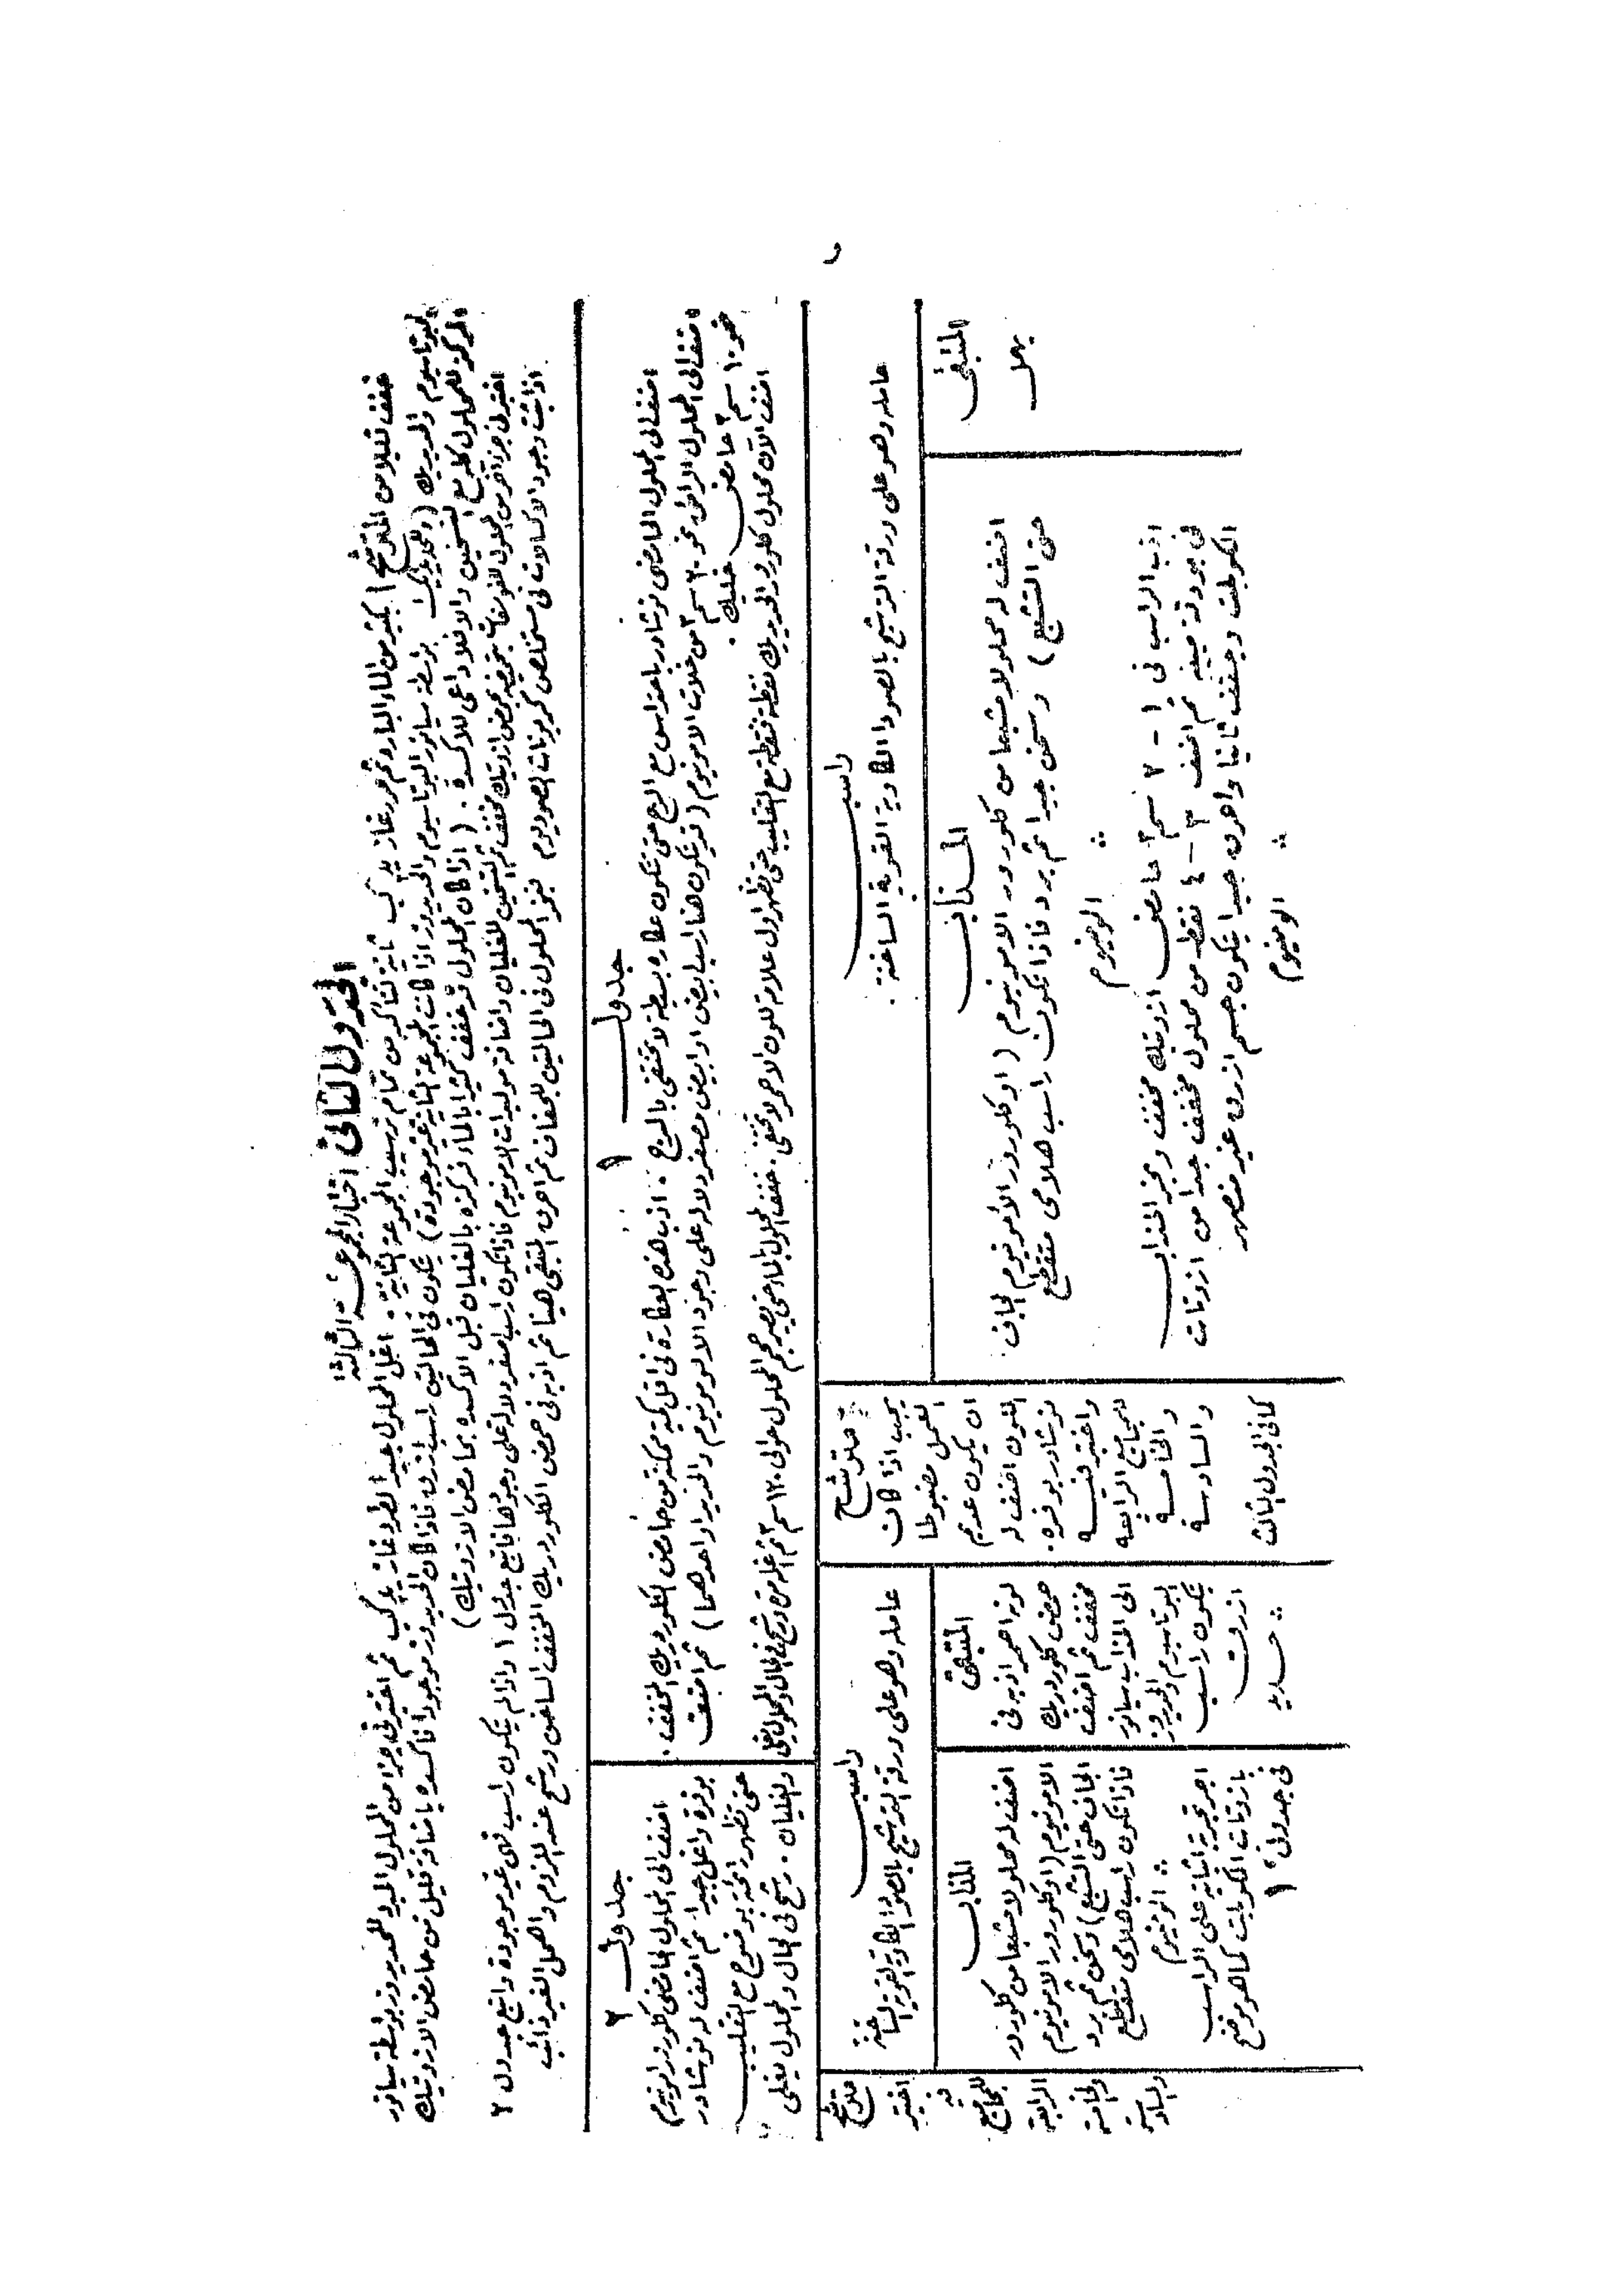 الجدول الثاني اختبار المجموعة الثالثة
خفف قليلا من المترشح ١ بكثير من الماء البارد ثم مرر غاز يد٢ كب ثانية لتتأكد من تمام ترسيب المجموعة الثانية . اغل المحلول جيدا لطرد غاز يد٢ كب ثم اختبر في جزء من المحلول المبرد للحديدوز بواسطة سيانور
البوتاسيوم والحديديك (وللحديديك بواسطة سيانور البوتاسيوم والحديدوز اذا كانت المجموعة الثانية غير موجودة) يتكون في الحالتين راسب ازرق فاذا كان الحديدوز موجودا فاكسده باضافة قليل من حامض الازوتيك
المركز للمحلول كله مع التسخين والا فلا داعى للاكسدة . (اذا كان المحلول قد خفف كثيرا بالماء فركزه بالغليان قبل الاكسده بحامض الازوتيك)
اختبر في جزء آخر من المحلول للفوسفات بتحميضه بحمض ازوتيك مخفف ثم التسخين للغليان واضافة موليبدات الامونيوم فاذا تكون راسب اصفر دلالة على وجودها فاتبع جدول ١ واذا لم يتكون راسب فهى غير موجودة واتبع جدول ٢
اذا ثبت وجود الاكسالات في مستخلص كربونات الصوديوم فبخر المحلول في الحالتين للجفاف ثم احرق المتبقى هينا ثم اذبه في حمض الكلوردريك المخفف الساخن ورشح عند اللزوم واهمل الغير ذائب
جدول ١
اضف الى المحلول الحامضى نوشادر باحتراس مع الرج حتى تتكون عكاره بسيطة لا تختفى بالرج . اذب هذه العكارة في اقل كمية ممكنة من حامض الكلوردريك المخفف .
اضف الى المحلول الرائق نحو ٢٠ سم٣ من خلات الامونيوم (قد يتكون هنا راسب ابيض او ابيض مصفر دلاله على وجود الالومونيوم والحديد او احدهما) ثم اضف
نحو ١٠ سم٣ حامض خليك .
اضف الآن محلول كلورور الحديديك نقطة فنقطة مع التقليب حتى تظهر اول علامة للون الاحمر لا تختفى . خفف المحلول بالماء حتى يصير حجم المحلول حوالى ١٢٠ سم٣ ثم اغله مرة ورشح في الحال والمحلول يغلى
راسب
عامله وهو على ورقة الترشيح بالصودا الكاوية القوية الساخنة .
المتبقى
يهمل
المذاب
اضف له محلولا مشبعا من كلورور الامونيوم (او كلورور الامونيوم الجاف
حتى التشبع) وسخن جيدا ثم برد فاذا تكون راسب هلامى متقطع
∴ الومنيوم
اذب الراسب في ١ - ٢ سم٣ حامض ازوتيك مخفف وبخر المذاب
في بودقة صينى ثم اضف ٣ - ٤ نقط من محلول مخفف جدا من ازوتات
الكوبلت وجفف ثانيا واحرق جيدا يتكون جسم ازرق غير منصهر
∴ الومنيوم
مترشح
يجب اذا كان
العمل مضبوطا
ان يكون عديم
اللون اضف له
نوشادر بوفره .
واختبر فيه
للمجاميع الرابعه
والخامسة
والسادسة
كما في الجدول الثالث
جدول ٢
اضف الى المحلول الحامضى كلورور امونيوم
بوفرة واغل جيدا ثم اضف له نوشادر
حتى تظهر رائحته بوضوح مع التقليب
والغليان . رشح في الحال والمحلول يغلى
راسب
عامله وهو على ورقة الترشيح بالصودا الكاوية القوية الساخنة
المتبقى
لونه احمر اذبه في
حمض كلوردريك
مخفف ثم اضف
الى المذاب سيانور
البوتاسيوم والحديدوز
يتكون راسب
ازرق
∴ حديد
المذاب
اضف له محلولا مشبعا من كلورور
الامونيوم (او كلورور الامونيوم
الجاف حتى التشبع) وسخن ثم برد
فاذا تكون راسب هلامى متقطع
∴ الومنيوم
اجر تجربة اثباتية على الراسب
بازوتات الكوبلت كما هو موضح
في جدول ١
مترشح
اختبر
فيه
للمجاميع
الرابعة
والخامسة
والسادسة